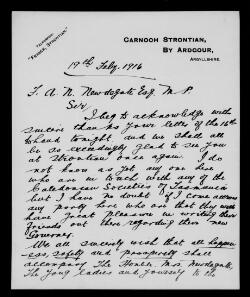 TELEGRAMS:
"FRASER, STRONTIAN."
CARNOCH STRONTIAN,
BY ARDGOUR,
ARGYLLSHIRE.
19th Feby. 1916
F. A. N. Newdegate Esq. M. P.
Sir,
I beg to acknowledge with
sincere thanks yours letter of the 16th
to hand tonight and we shall all
be so exceedingly glad to see you
at Strontian once again. I do
not know as yet any one here
who are in touch with any of the
Caledonian Societies of Tasmania
but I have no doubt if I come across
any party here who are that they will
have great pleasure in writing their
friends out there regarding their new
Governor.
We all sincerely wish that all happin-
ess, safety and prosperity shall
accompany The Honble. Mrs Newdegate,
The young ladies and yourself to the